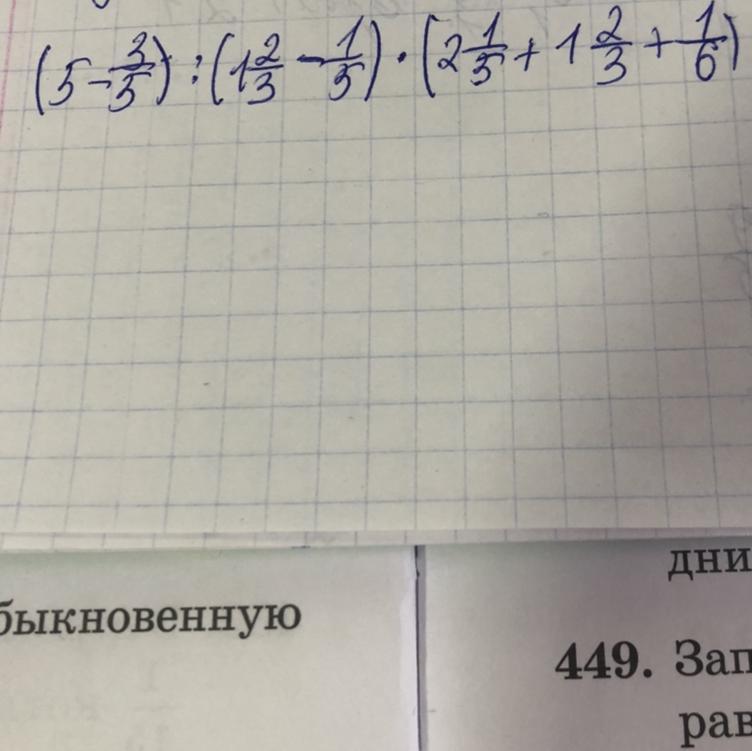 (5 - 3/5) : (1 2/3 - 1/5) · (2 1/5 + 1 2/3 + 1/6)
быкновенную
дни
449. Зап
рав